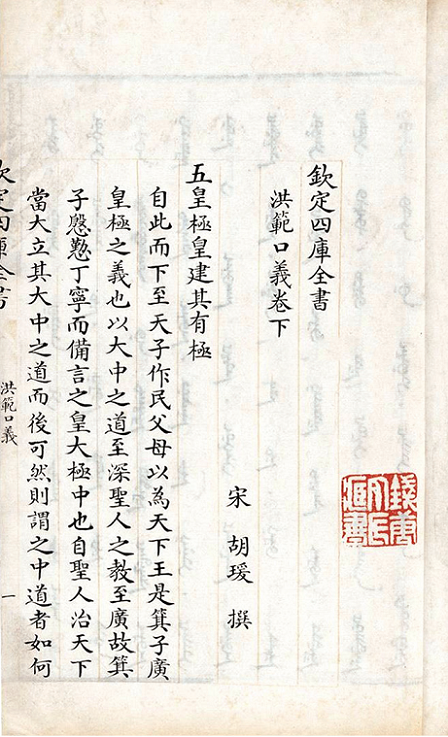 欽定四庫全書
洪範口義卷下
宋 胡瑗 撰
五皇極皇建其有極
自此而下至天子作民父母以為天下王是箕子廣
皇極之義也以大中之道至深聖人之教至廣故箕
子慇懃丁寧而備言之皇大極中也自聖人治天下
當大立其大中之道而後可然則謂之中道者如何
欽定四庫全書
洪範口義
一